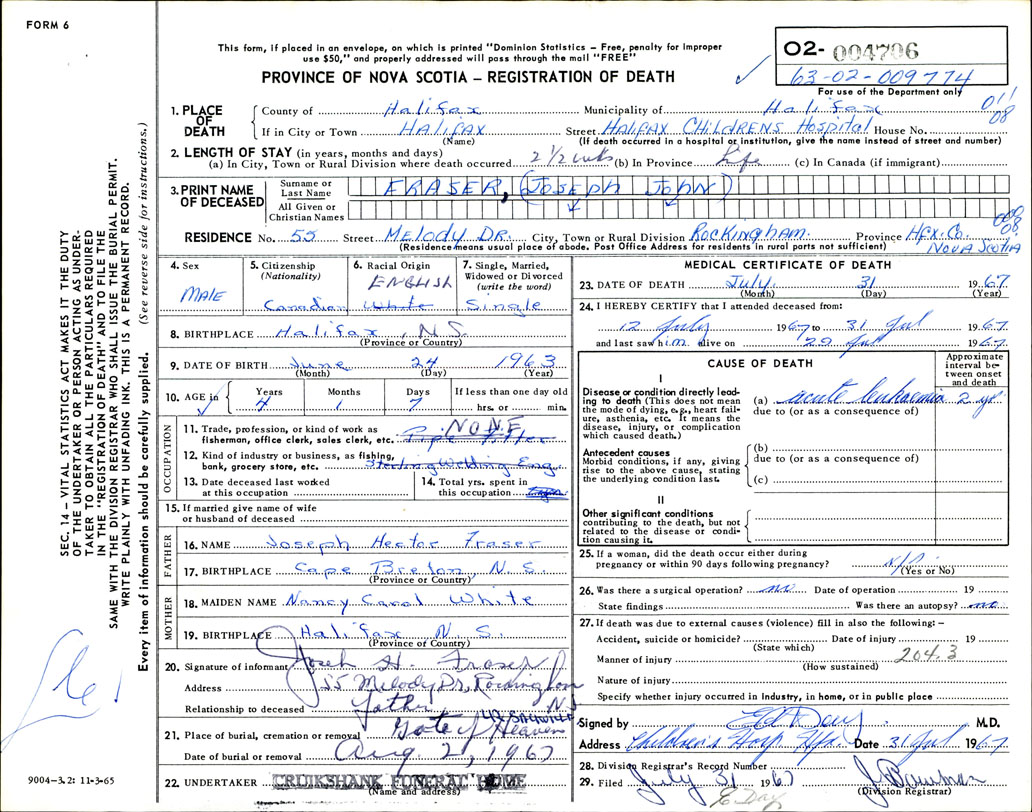 FORM 6
This form, if placed in an envelope, on which is printed "Dominion Statistics – Free, penalty for improper
use $50," and properly addressed will pass through the mail "FREE"
PROVINCE OF NOVA SCOTIA – REGISTRATION OF DEATH
02- 004706
63-02-009774
For use of the Department only
011
08
1. PLACE OF DEATH
County of Halifax Municipality of Halifax
If in City or Town HALIFAX Street HALIFAX CHILDRENS Hospital House No.
(Name) (If death occurred in a hospital or institution, give the name instead of street and number)
2. LENGTH OF STAY (in years, months and days)
(a) In City, Town or Rural Division where death occurred 2 1/2 wks (b) In Province Life (c) In Canada (if immigrant)
3. PRINT NAME OF DECEASED
Surname or Last Name FRASER, (JOSEPH JOHN)
All Given or Christian Names
RESIDENCE No. 55 Street MELODY DR. City, Town or Rural Division ROCKINGHAM Province Hfx. Co.
NOVA SCOTIA
(Residence means usual place of abode. Post Office Address for residents in rural parts not sufficient)
4. Sex
MALE
5. Citizenship
(Nationality)
Canadian
6. Racial Origin
ENGLISH
White
7. Single, Married,
Widowed or Divorced
(write the word)
Single
8. BIRTHPLACE Halifax, N S
(Province or Country)
9. DATE OF BIRTH June 24 1963
(Month) (Day) (Year)
10. AGE in
Years Months Days If less than one day old
4 1 7 hrs. or min.
OCCUPATION
11. Trade, profession, or kind of work as
fisherman, office clerk, sales clerk, etc. NONE Pipe Fitter
12. Kind of industry or business, as fishing,
bank, grocery store, etc. Sterling Welding Eng.
13. Date deceased last worked
at this occupation
14. Total yrs. spent in
this occupation
15. If married give name of wife
or husband of deceased
FATHER
16. NAME Joseph Hector Fraser
17. BIRTHPLACE Cape Breton, N. S.
(Province or Country)
MOTHER
18. MAIDEN NAME Nancy Carol White
19. BIRTHPLACE Halifax N. S.
(Province or Country)
20. Signature of informant Joseph H. Fraser
Address 55 Melody Dr, Rockingham
N S
Relationship to deceased father
21. Place of burial, cremation or removal Gate of Heaven
Date of burial or removal Aug. 2, 1967
22. UNDERTAKER CRUIKSHANK FUNERAL HOME
(Name and address)
MEDICAL CERTIFICATE OF DEATH
23. DATE OF DEATH July 31 1967
(Month) (Day) (Year)
24. I HEREBY CERTIFY that I attended deceased from:
12 July 1967 to 31 Jul 1967
and last saw him alive on 29 Jul 1967
CAUSE OF DEATH
Approximate
interval be-
tween onset
and death
I
Disease or condition directly lead-
ing to death (This does not mean
the mode of dying, e.g., heart fail-
ure, asthenia, etc. It means the
disease, injury, or complication
which caused death.)
(a) acute leukaemia 2 yr
due to (or as a consequence of)
Antecedent causes
Morbid conditions, if any, giving
rise to the above cause, stating
the underlying condition last.
(b)
due to (or as a consequence of)
(c)
II
Other significant conditions
contributing to the death, but not
related to the disease or condi-
tion causing it.
25. If a woman, did the death occur either during
pregnancy or within 90 days following pregnancy?
(Yes or No)
26. Was there a surgical operation? no Date of operation 19
State findings Was there an autopsy? no
27. If death was due to external causes (violence) fill in also the following: –
Accident, suicide or homicide? Date of injury 19
(State which)
Manner of injury 204.3
(How sustained)
Nature of injury
Specify whether injury occurred in Industry, in home, or in public place
Signed by M.D.
Address Children's Hosp. Hfx. Date 31 Jul 1967
28. Division Registrar's Record Number
29. Filed July 31 1967
(Division Registrar)
SEC. 14 – VITAL STATISTICS ACT MAKES IT THE DUTY
OF THE UNDERTAKER OR PERSON ACTING AS UNDER-
TAKER TO OBTAIN ALL THE PARTICULARS REQUIRED
IN THE "REGISTRATION OF DEATH" AND TO FILE THE
SAME WITH THE DIVISION REGISTRAR WHO SHALL ISSUE THE BURIAL PERMIT.
WRITE PLAINLY WITH UNFADING INK. THIS IS A PERMANENT RECORD.
Every item of information should be carefully supplied. (See reverse side for instructions.)
9004-3.2: 11-3-65